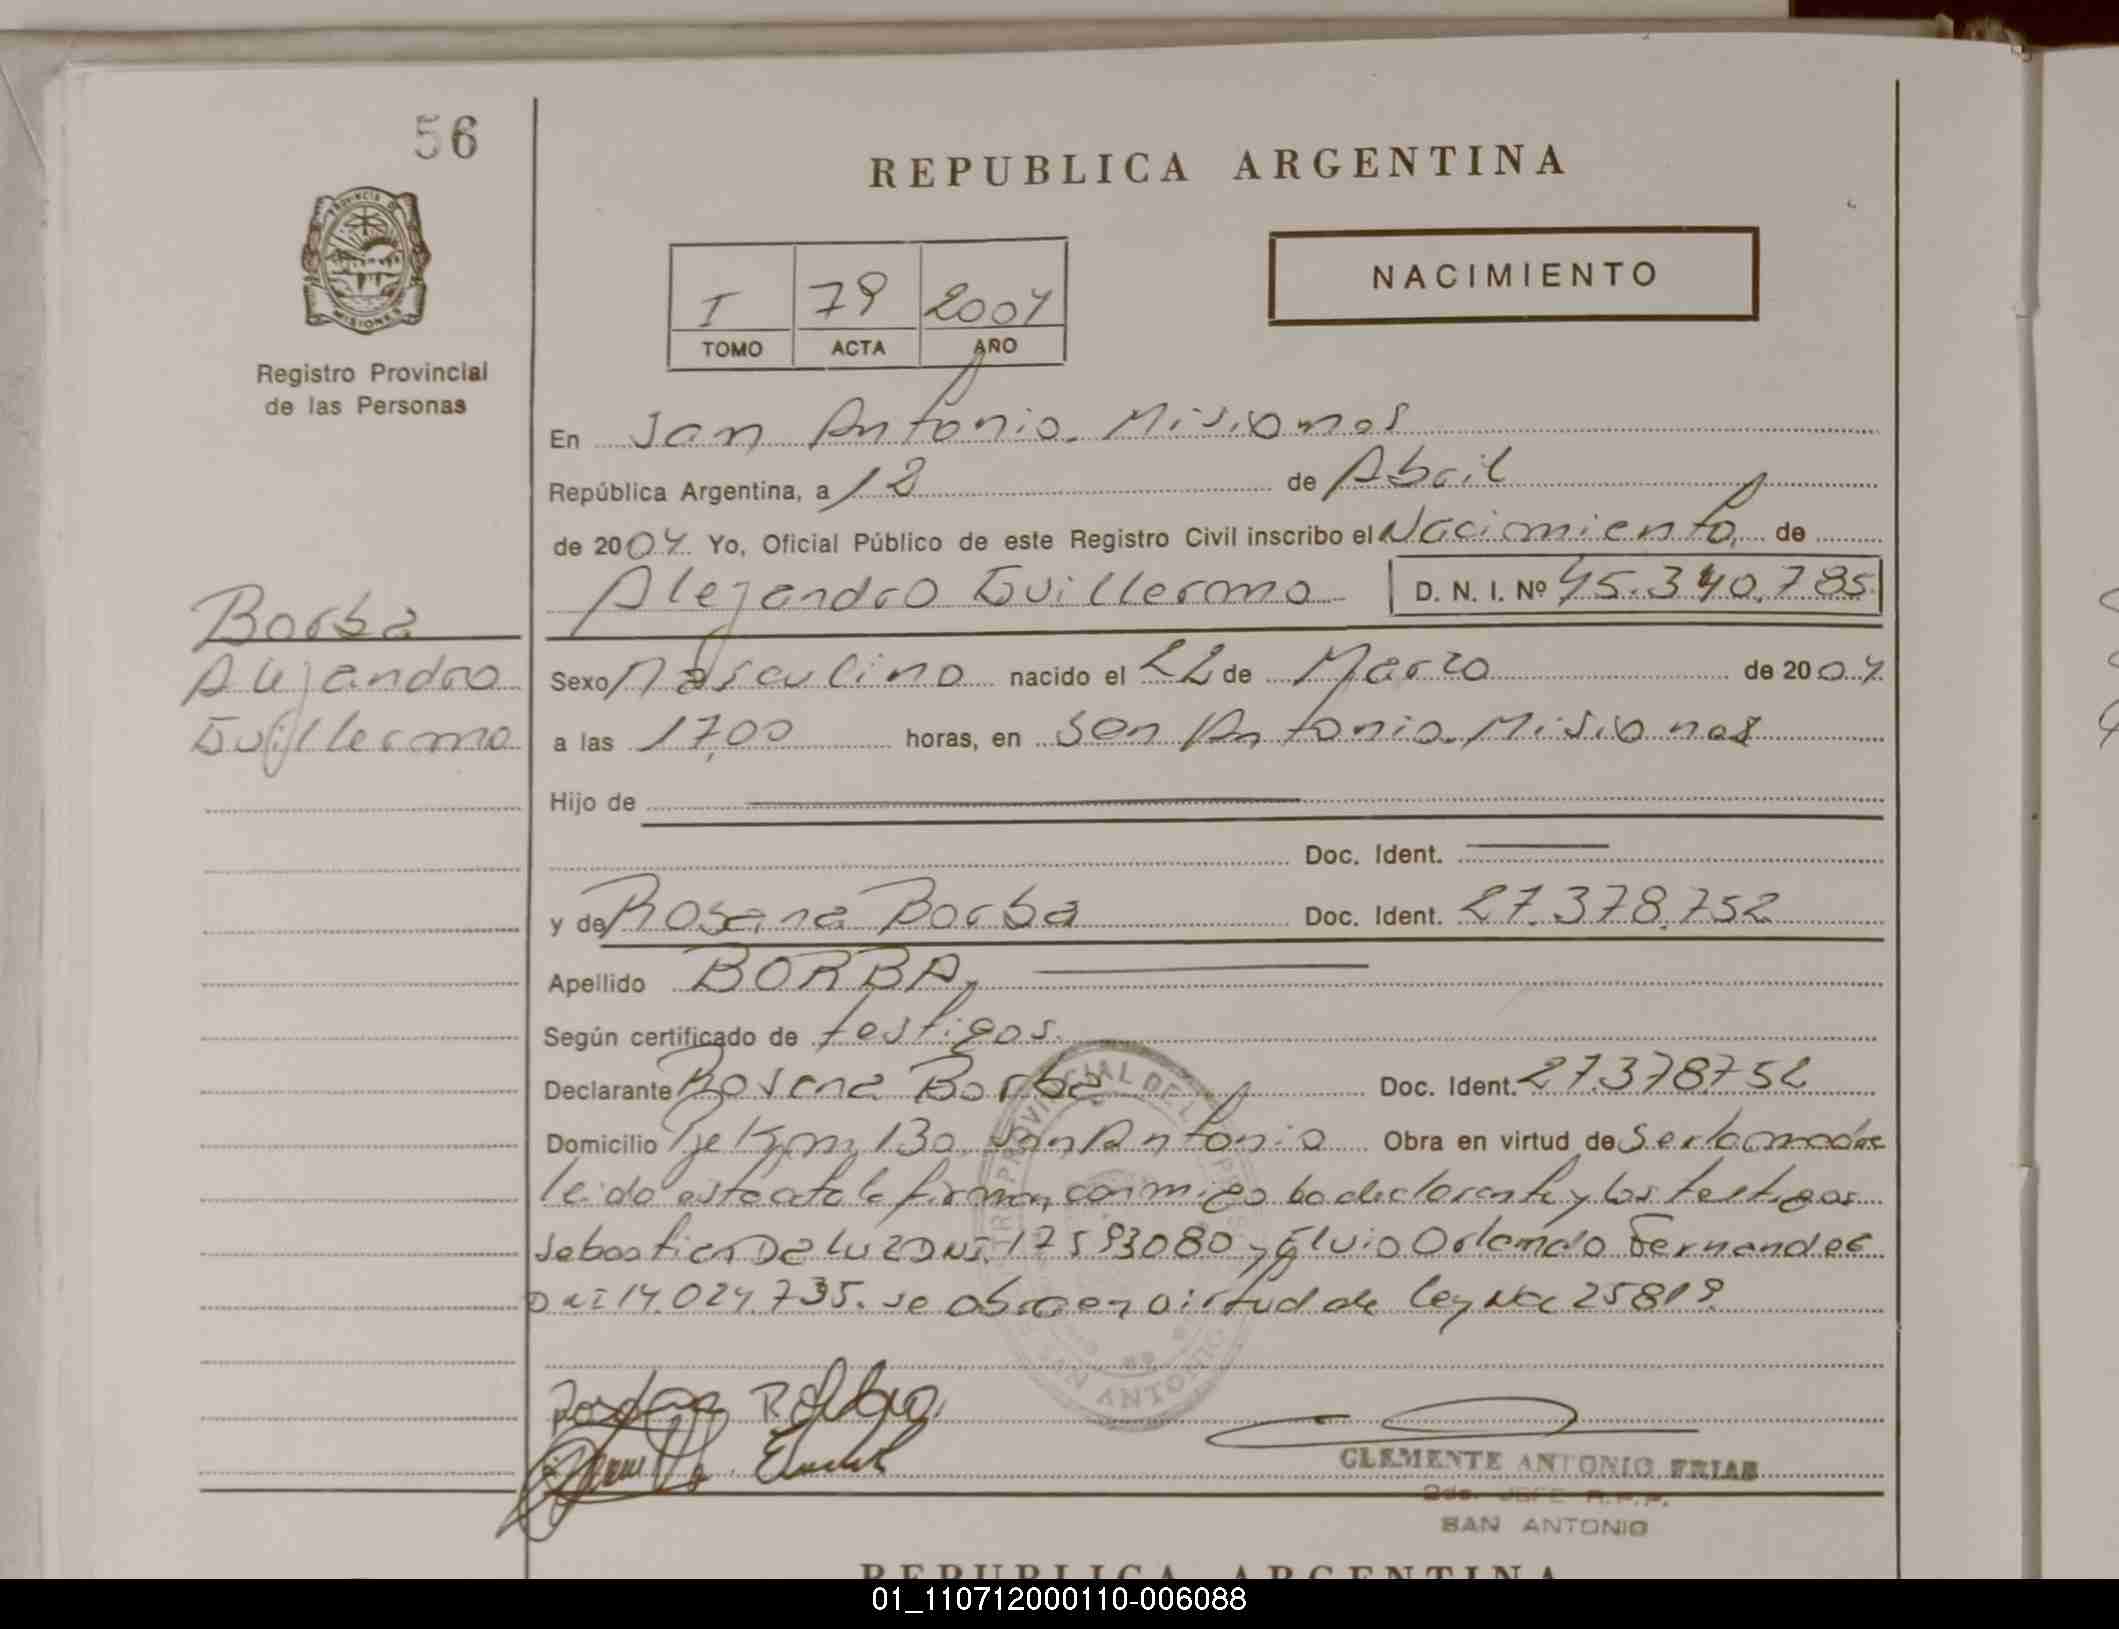 56
REPUBLICA ARGENTINA
PROVINCIA DE
MISIONES
NACIMIENTO
I 79 2004
TOMO ACTA AÑO
Registro Provincial
de las Personas
En San Antonio. Misiones
República Argentina, a 12 de Abril
de 2004. Yo, Oficial Público de este Registro Civil inscribo el Nacimiento, de
Alejandro Guillermo D. N. I. Nº 45.340.785
Borba
Alejandro
Guillermo
Sexo Masculino nacido el 22 de Marzo de 2004.
a las 17,00 horas, en San Antonio. Misiones
Hijo de
Doc. Ident.
y de Rosana Borba Doc. Ident. 27.378.752
Apellido BORBA,
Según certificado de testigos.
Declarante Rosana Borba Doc. Ident. 27.378.752
Domicilio Km, 130, San Antonio Obra en virtud de Ser la madre
leido esta acta la firman conmigo la declarante y los testigos
Sebastian Da Luz DNI. 17593080 y Elvio Orlando Fernandes
DNI 14.024.735. se obra en virtud de ley Nº 25819.
SAN ANTONIO
CLEMENTE ANTONIO FRIAS
2do. JEFE R.P.P.
SAN ANTONIO
REPUBLICA ARGENTINA
01_110712000110-006088